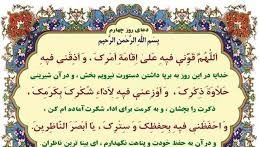 دعای روز چهارم
بسم الله الرحمن الرحیم
اَللّٰهُمَّ قَوِّنی فیهِ عَلیٰ اِقامَةِ اَمرِکَ ، وَ اَذِقنی فیهِ
خدایا در این روز به برپا داشتن دستورت نیرویم بخش ، و در آن شیرینی
حَلاوَةَ ذِکرِکَ ، وَ اَوزِعنی فیهِ لِاَداءِ شُکرِکَ بِکَرَمِکَ ،
ذکرت را بچشان ، و به کرمت برای اداء شکرت آماده ام کن ،
وَ احفَظنی فیهِ بِحِفظِکَ وَ سِترِکَ ، یا اَبصَرَ النّاظِرینَ.
و در آن به حفظ خودت و پناهت نگهدارم ، ای بینا ترین ناظران.